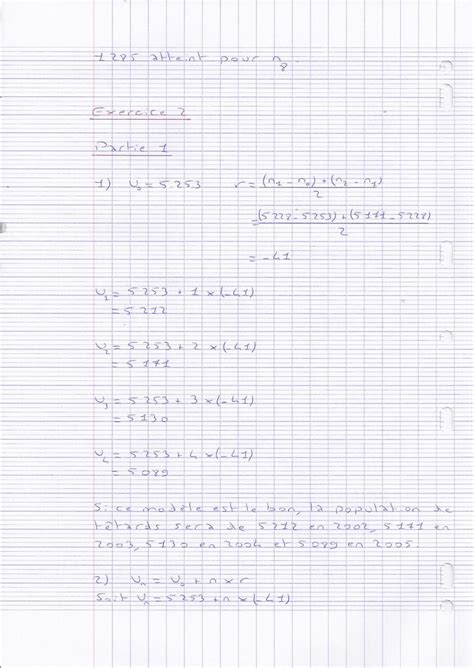 1285 atteint pour n₈.
Exercice 2
Partie 1
1) U₀ = 5253 r = (n₁ - n₀) + (n₂ - n₁)
2
= (5228 - 5253) + (5171 - 5228)
2
= -41
U₁ = 5253 + 1 × (-41)
= 5212
U₂ = 5253 + 2 × (-41)
= 5171
U₃ = 5253 + 3 × (-41)
= 5130
U₄ = 5253 + 4 × (-41)
= 5089
Si ce modèle est le bon, la population de
têtards sera de 5212 en 2002, 5171 en
2003, 5130 en 2004 et 5089 en 2005.
2) Uₙ = U₀ + n × r
Soit Uₙ = 5253 + n × (-41)